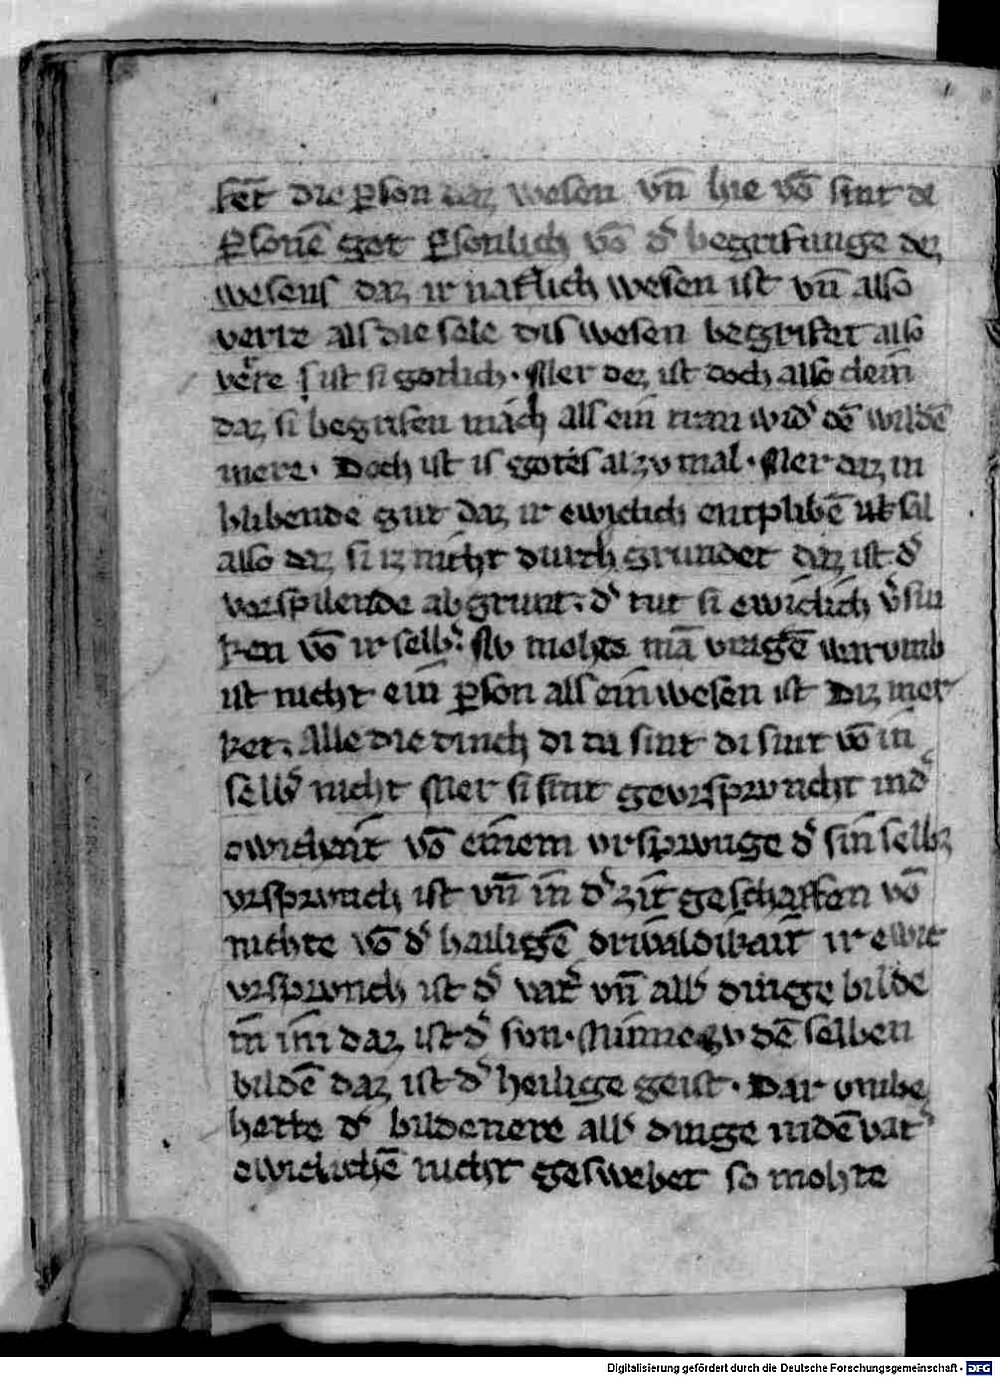 ket die ꝑson daz wesen vn̄ hie vō sint di
ꝑsonē got ꝑsonlich vō dˀ begrifunge dez
wesens daz ir natˀlich wesen ist vn̄ also
verre als die sele dis wesen begrifet also
vˀre ist si gotlich. Mer dez ist doch also clein
daz si begrifen mach als ein widˀ dē wildē
mere. Doch ist is gotes alzv mal. Mer daz in
blibende gut daz ir ewiclich entplibē
also dez si iz nicht durch grundet daz ist dˀ
verspilende abgrunt. dˀ tut si ewiclich vˀsin
ken vō ir selbˀ. Nv mohte mā vragē warvmb
ist nicht ein ꝑson als ein wesen ist Diz mer
ket. Alle die dinch di da sint di sint vō in
selbˀ nicht Mer si sint gevrsprvncht in dˀ
ewicheit vō einem vrsprvnge dˀ sin selbz
vrsprvnch ist vn̄ in dˀ zit geschaffen vō
nichte vō dˀ hailigē drivaldikait ir ewic
vrsprvnch ist dˀ vatˀ vn̄ allˀ dinge bilde
in im daz ist dˀ svn. Minne zv dē selben
bildē daz ist dˀ heilige geist. Dar vmbe
hette dˀ bildenere allˀ dinge in dē vatˀ
ewiclichē nicht geswebet so mohte
Digitalisierung gefördert durch die Deutsche Forschungsgemeinschaft - DFG